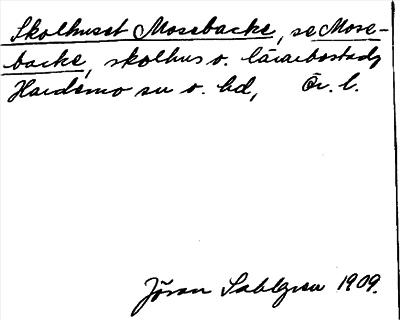 Skolhuset Mosebacke, se Mose-
backe, skolhus o. lärarbostad,
Hardemo sn o. hd, Ör. l.
Jöran Sahlgren 1909.